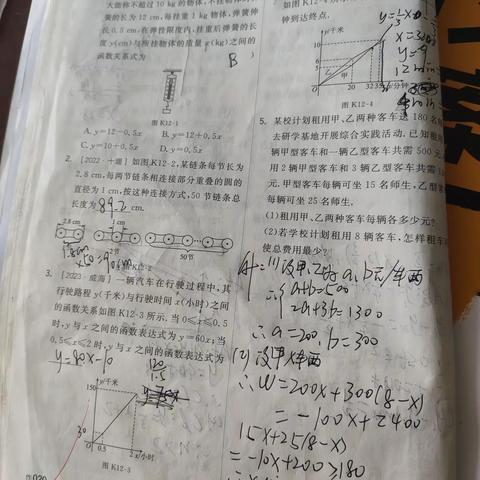 大能称不超过10kg的物体,不挂物体时
簧的长为12cm,每挂重1kg物体,弹簧伸
长0.5cm.在弹性限度内,挂重后弹簧的长
度y(cm)与所挂物体的质量x(kg)之间的
函数关系式为
B
图K12-1
A. y=12-0.5x
B. y=12+0.5x
C. y=10+0.5x
D. y=0.5x
2. [2022·十堰] 如图K12-2,某链条每节长为
2.8 cm,每两节链条相连接部分重叠的圆的
直径为1 cm,按这种连接方式,50节链条总
长度为 cm.
2.8 cm
1 cm
50节
3. [2023·威海] 一辆汽车在行驶过程中,其
行驶路程y(千米)与行驶时间x(小时)之间
的函数关系如图K12-3所示.当0≤x≤0.5
时,y与x之间的函数表达式为y=60x;当
0.5≤x≤2时,y与x之间的函数表达式为
y=80x-10
120
1.5
y/千米
150
30
0
0.5
2
x/小时
图K12-3
钟到达终点.
y/千米
10
6
乙
甲
0
20
32
分钟
图K12-4
5. 某校计划租用甲、乙两种客车送180名
去研学基地开展综合实践活动.已知租用
辆甲型客车和一辆乙型客车共需500元,
用2辆甲型客车和3辆乙型客车共需
元.甲型客车每辆可坐15名师生,乙型客
每辆可坐25名师生.
(1)租用甲、乙两种客车每辆各多少元?
(2)若学校计划租用8辆客车,怎样租车
使总费用最少?
a+b=500
2a+3b=1300
∴a=200, b=300
∴W=200x+300(8-x)
=-100x+2400
15x+25(8-x)
=-10x+200≥180